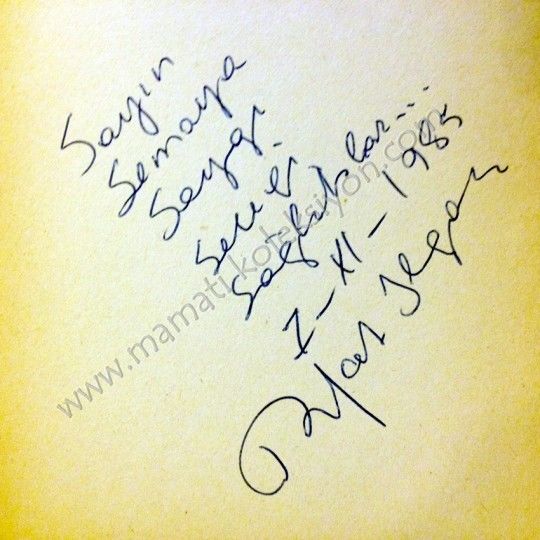 Sayın
Semaya
Saygı.
Sevgi.
Sağlıklar...
2-XI-1985
Rıfat Ilgaz
www.mamatikoleksiyon.com